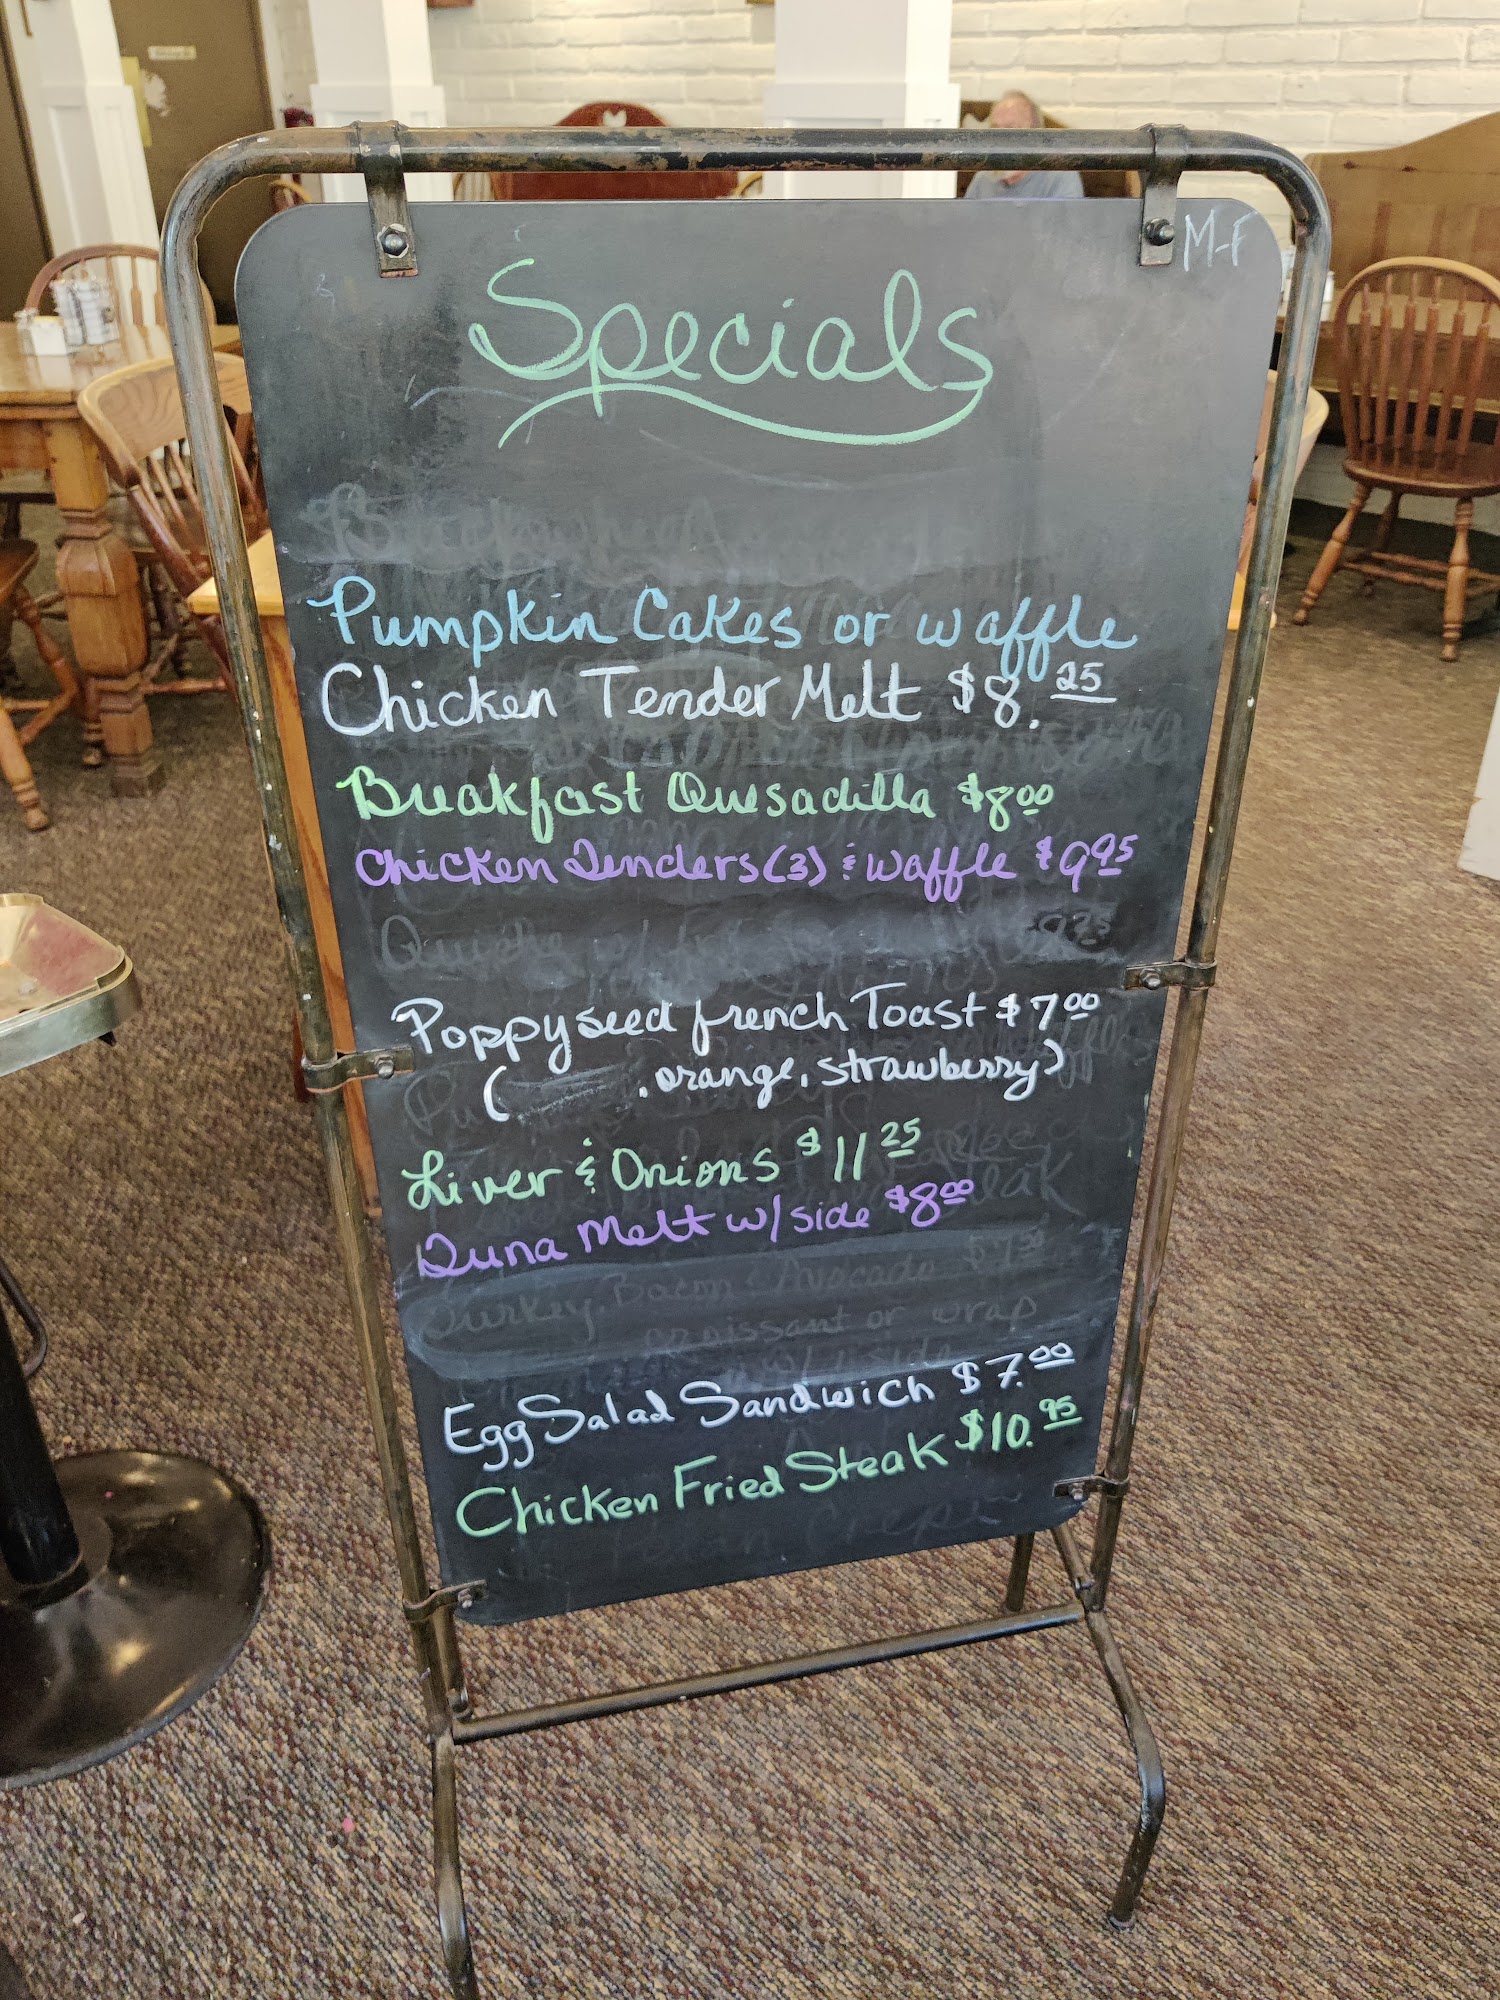 M-F
Specials
Pumpkin Cakes or waffle
Chicken Tender Melt $8.25
Breakfast Quesadilla $8.00
Chicken Tenders (3) & waffle $9.95
Quiche
Poppyseed french Toast $7.00
( , orange, strawberry)
Liver & Onions $11.25
Tuna Melt w/side $8.00
Turkey, Bacon & Avocado
croissant or wrap
side
Egg Salad Sandwich $7.00
Chicken Fried Steak $10.95